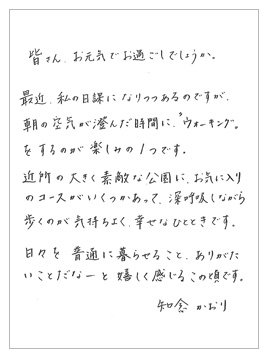 皆さん、お元気でお過ごしでしょうか。
最近、私の日課になりつつあるのですが、
朝の空気が澄んだ時間に、"ウォーキング"
をするのが楽しみの1つです。
近所の大きく素敵な公園に、お気に入り
のコースがいくつかあって、深呼吸しながら
歩くのが気持ちよく、幸せなひとときです。
日々を普通に暮らせること、ありがた
いことだなーと嬉しく感じるこの頃です。
知念 かおり